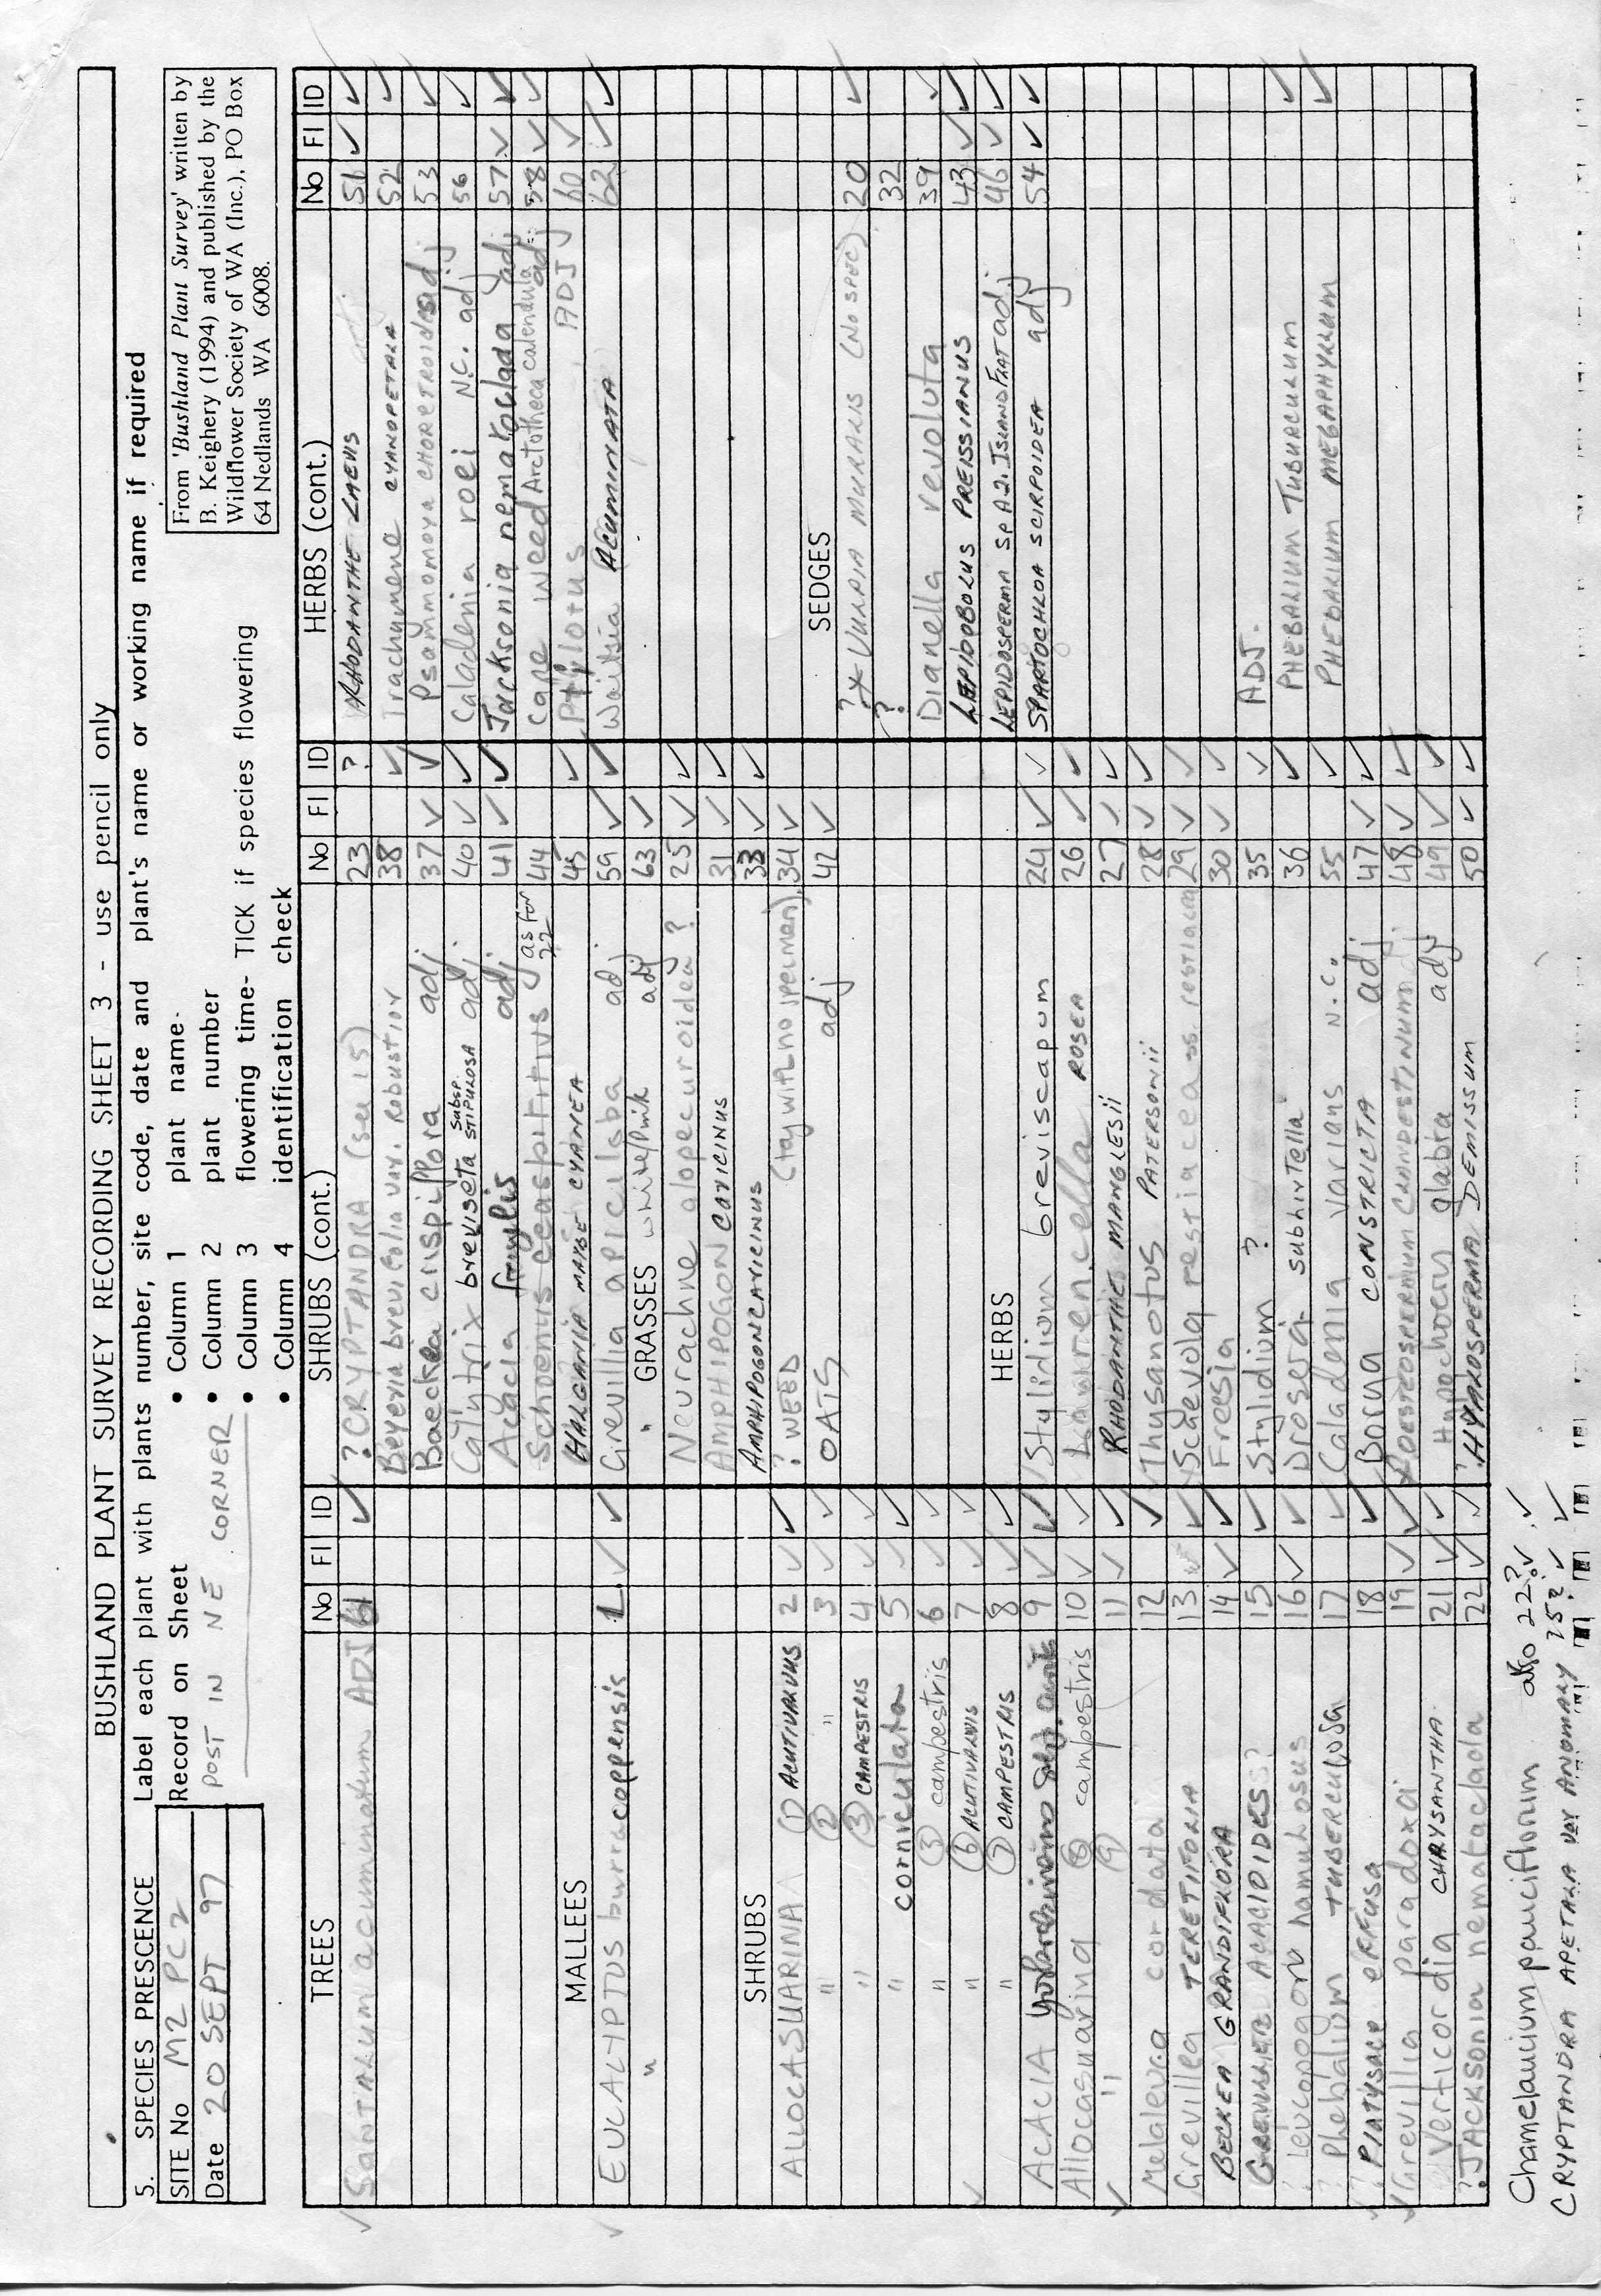 BUSHLAND PLANT SURVEY RECORDING SHEET 3 - use pencil only
5. SPECIES PRESCENCE
Label each plant with plants number, site code, date and plant's name or working name if required
SITE No M2 PC 2
Date 20 SEPT 97
Record on Sheet
POST IN NE CORNER
• Column 1 plant name-
• Column 2 plant number
• Column 3 flowering time- TICK if species flowering
• Column 4 identification check
From 'Bushland Plant Survey' written by
B. Keighery (1994) and published by the
Wildflower Society of WA (Inc.), PO Box
64 Nedlands WA 6008.
TREES No Fl ID
Santalum acuminatum ADJ 61 ✓
MALLEES
EUCALYPTUS burracoppensis 1 ✓ ✓
"
SHRUBS
ALLOCASUARINA (1) ACUTIVALVIS 2 ✓ ✓
" (2) " 3 ✓ ✓
" (3) CAMPESTRIS 4 ✓ ✓
" corniculata 5 ✓ ✓
" (3) campestris 6 ✓ ✓
" (6) ACUTIVALVIS 7 ✓ ✓
" (7) CAMPESTRIS 8 ✓ ✓
ACACIA 9 ✓ ✓
Allocasuarina (8) campestris 10 ✓ ✓
" (9) 11 ✓ ✓
Melaleuca cordata 12 ✓
Grevillea TERETIFOLIA 13 ✓
BECKEA GRANDIFLORA 14 ✓ ✓
ACACIOIDES? 15 ✓
Leucopogon hamulosus 16 ✓ ✓
? Phebalium TUBERCULOSA 17 ✓
? PLATYSACE EFFUSA 18 ✓
Grevillia paradoxa 19 ✓ ✓
Verticordia CHRYSANTHA 21 ✓ ✓
? JACKSONIA nematoclada 22 ✓ ✓
Chamelaucium pauciflorum also 22? ✓ ✓
CRYPTANDRA APETALA VAR ANOMALY 15? ✓ ✓
SHRUBS (cont.) No Fl ID
? CRYPTANDRA (see 15) 23 ?
Beyeria brevifolia var. robustior 38 ✓
Baeckea crispiflora adj 37 ✓ ✓
Calytrix breviseta SUBSP. STIPULOSA adj. 40 ✓ ✓
Acacia adj 41 ✓ ✓
Schoenus ceaspititius as for 22 44
HALGANIA CYANEA 45 ✓
Grevillia apiciloba adj. 59 ✓ ✓
" white/pink adj 63 ✓
GRASSES
Neurachne alopecuroidea ? 25 ✓ ✓
AMPHIPOGON CARICINUS 31 ✓ ✓
AMPHIPOGON CARICINUS 33 ✓ ✓
? WEED (tay with no specimen). 34 ✓
OATS adj 42 ✓
HERBS
Stylidium breviscapum 24 ✓ ✓
Lawrencella ROSEA 26 ✓ ✓
RHODANTHE MANGLESII 27 ✓ ✓
Thysanotus PATERSONII 28 ✓ ✓
Scaevola restiacea ss. restiacea 29 ✓ ✓
Freesia 30 ✓ ✓
Stylidium ? 35 ✓
Drosera subhirtella 36 ✓
Caladenia varians N.C. 55 ✓
Borya CONSTRICTA adj. 47 ✓ ✓
CLANDESTINUM 48 ✓ ✓
Hypochoeris glabra adj 49 ✓ ✓
? HYALOSPERMA DEMISSUM 50 ✓ ✓
HERBS (cont.) No Fl ID
RHODANTHE LAEVIS 51 ✓ ✓
Trachymene CYANOPETALA 52 ✓
Psammomoya CHORETROIDES adj 53 ✓
Caladenia roei N.C. adj 56 ✓
Jacksonia nematoclada adj 57 ✓ ✓
Cape weed Arctotheca calendula adj 58 ✓ ✓
Ptilotus ADJ 60 ✓ ✓
Waitsia ACUMINATA 62 ✓ ✓
SEDGES
? X VULPIA MURALIS (NO SPEC) 20 ✓
? 32
Dianella revoluta 39 ✓
LEPIDOBOLUS PREISSIANUS 43 ✓ ✓
LEPIDOSPERMA SP A2. ISLAND FLAT adj 46 ✓ ✓
SPARTOCHLOA SCIRPOIDEA adj 54 ✓ ✓
ADJ.
PHEBALIUM TUBURCULUM ✓
PHEBALIUM MEGAPHYLLUM ✓